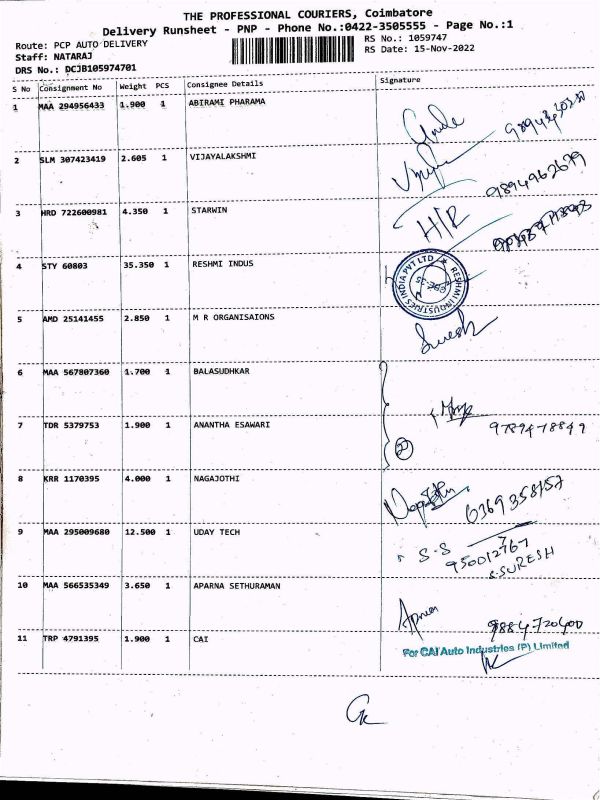 THE PROFESSIONAL COURIERS, Coimbatore
Delivery Runsheet - PNP - Phone No.:0422-3505555 - Page No.:1
Route: PCP AUTO DELIVERY
RS No.: 1059747
Staff: NATARAJ
RS Date: 15-Nov-2022
DRS No.: DCJB105974701
S No Consignment No Weight PCS Consignee Details Signature
1 MAA 294956433 1.900 1 ABIRAMI PHARAMA
2 SLM 307423419 2.605 1 VIJAYALAKSHMI
9894962679
3 HRD 722600981 4.350 1 STARWIN H/R
4 STY 60803 35.350 1 RESHMI INDUS
RESHMI INDUSTRIES INDIA PVT LTD
5 AMD 25141455 2.850 1 M R ORGANISAIONS Suresh
6 MAA 567807360 1.700 1 BALASUDHKAR
7 TDR 5379753 1.900 1 ANANTHA ESAWARI
2
8 KRR 1170395 4.000 1 NAGAJOTHI
6369358157
9 MAA 295009680 12.500 1 UDAY TECH S-S
950012767
S.SURESH
10 MAA 566535349 3.650 1 APARNA SETHURAMAN
9884720400
11 TRP 4791395 1.900 1 CAI
For CAI Auto Industries (P) Limited